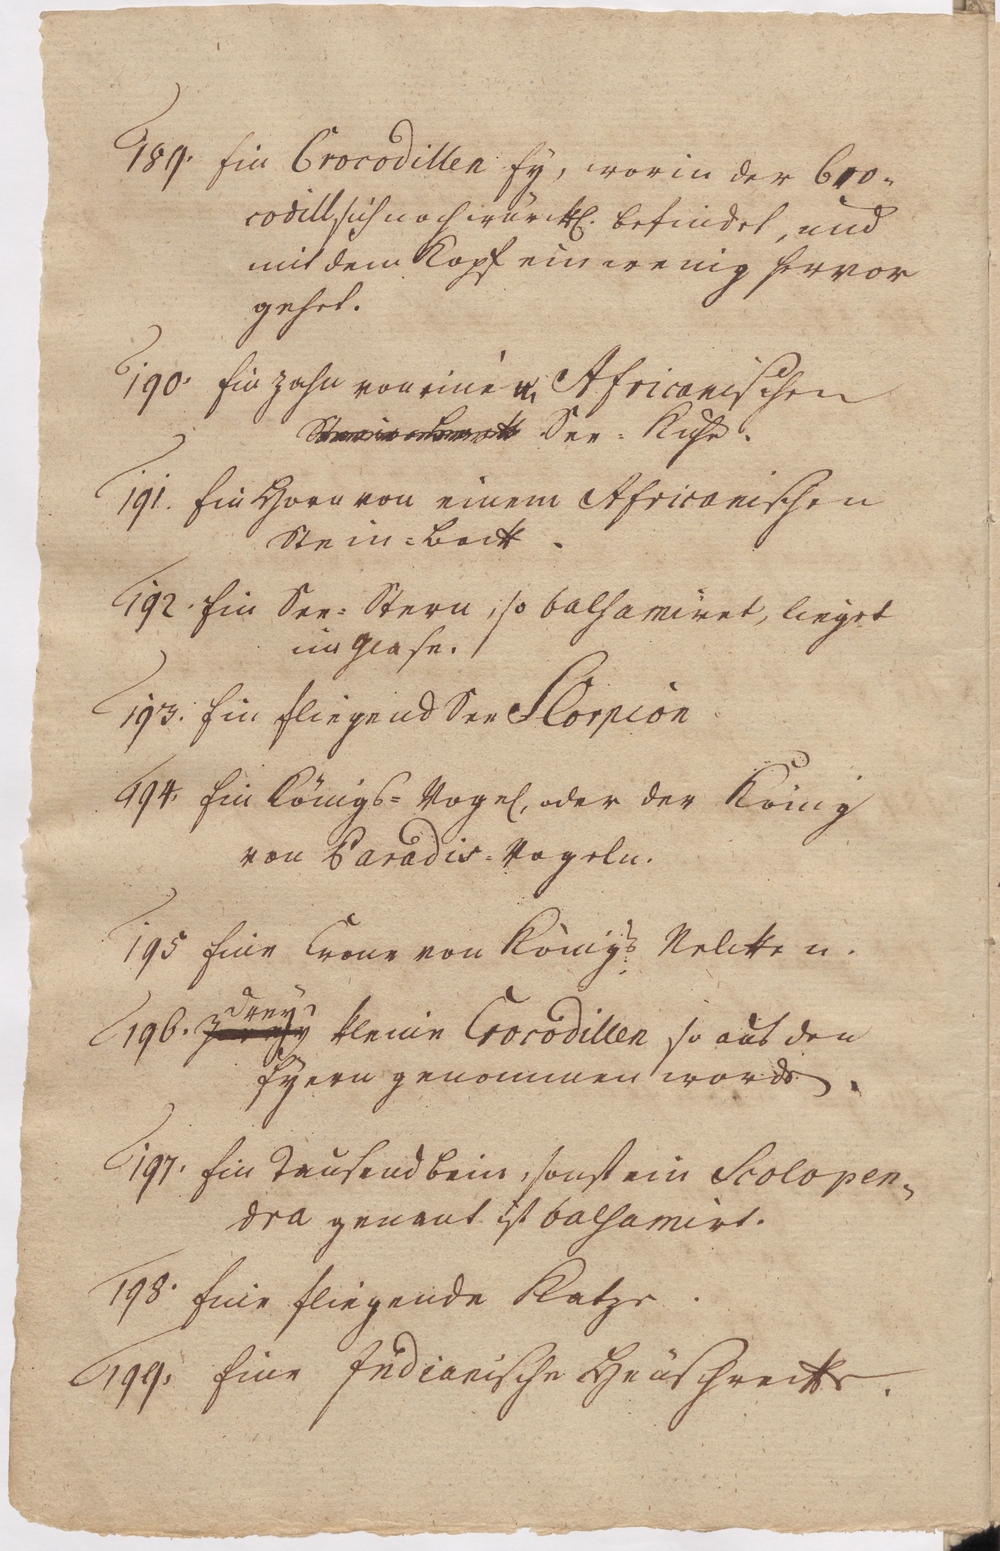 189. Ein Crocodillen Ey, worin der Cro-
codill, sich noch würckl. befindet, und
mit dem Kopf ein wenig hervor
gehet.
190. Ein Zahn von eine Africanischen
See-Kuhe.
191. Ein Horn von einem Africanischen
Stein-bock.
192. Ein See-Stern, so balsamiret, lieget
im Glase.
193. Ein fliegend See Scorpion
194. Ein Königs-Vogel, oder der König
von Paradis-Vogeln.
195 Eine Crone von Königs Nelcken.
drey
196. kleine Crocodillen so aus den
Eyern genommen worden.
197. Ein Tausendbein, sonst ein Scolopen-
dra genant ist balsamirt.
198. Eine fliegende Katze.
199. Eine Indianische Heuschrecke.